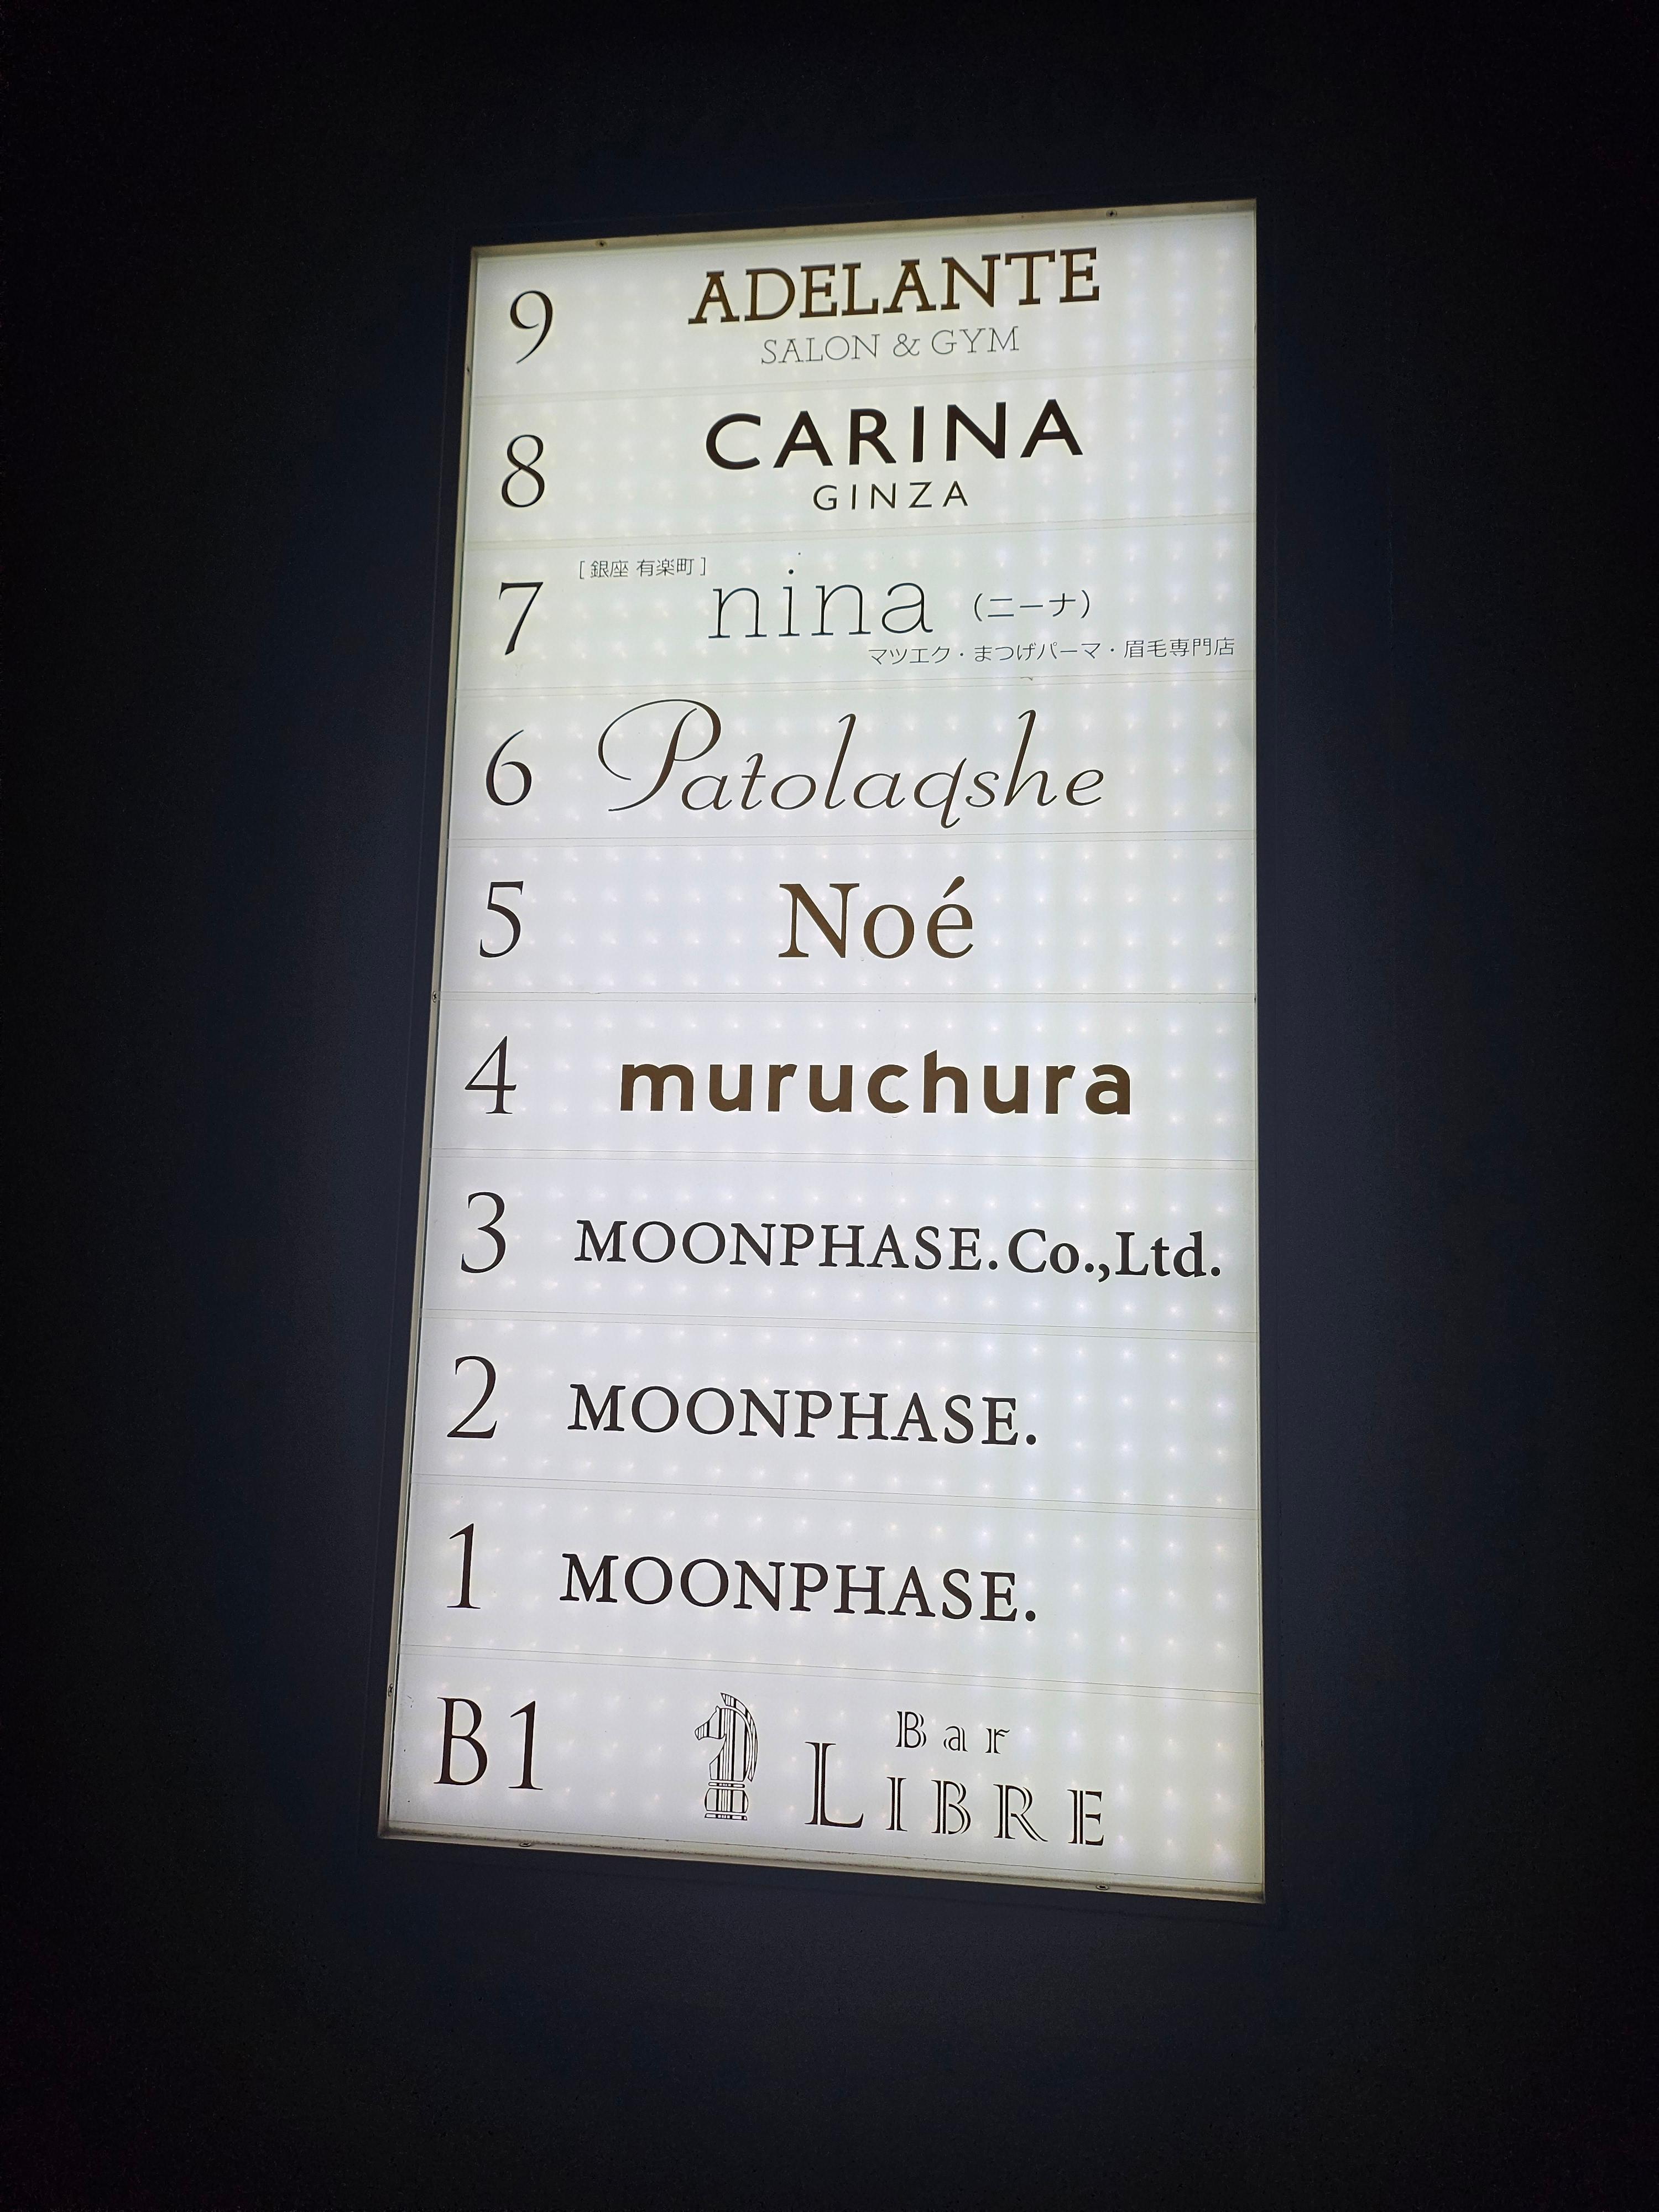 9 ADELANTE
SALON & GYM
8 CARINA
GINZA
[銀座 有楽町]
7 nina (ニーナ)
マツエク・まつげパーマ・眉毛専門店
6 Patolaqshe
5 Noé
4 muruchura
3 MOONPHASE.Co.,Ltd.
2 MOONPHASE.
1 MOONPHASE.
B1 Bar
LIBRE